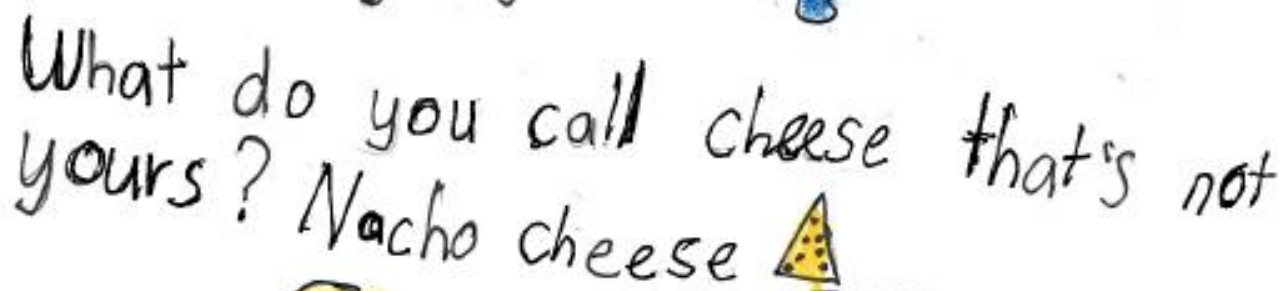 What do you call cheese that's not
yours? Nacho cheese